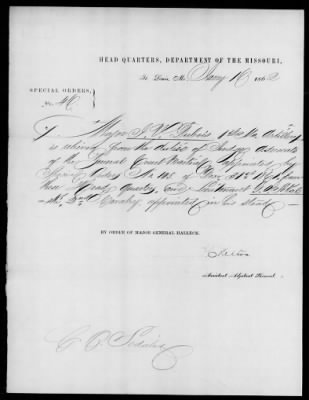 HEAD QUARTERS, DEPARTMENT OF THE MISSOURI,
St. Louis, Mo. Jany 16 1862
SPECIAL ORDERS,
No. 46
I. Major J. V. Dubois 1st Mo. Artillery
is relieved from the duties of Judge Advocate
of the General Court Martial appointed by
Special Orders No. 108 of from
these Head Quarters, and Lieutenant
Cavalry, appointed in his stead.
BY ORDER OF MAJOR GENERAL HALLECK.
Kelton
Assistant Adjutant General.
C. O. Sedalia